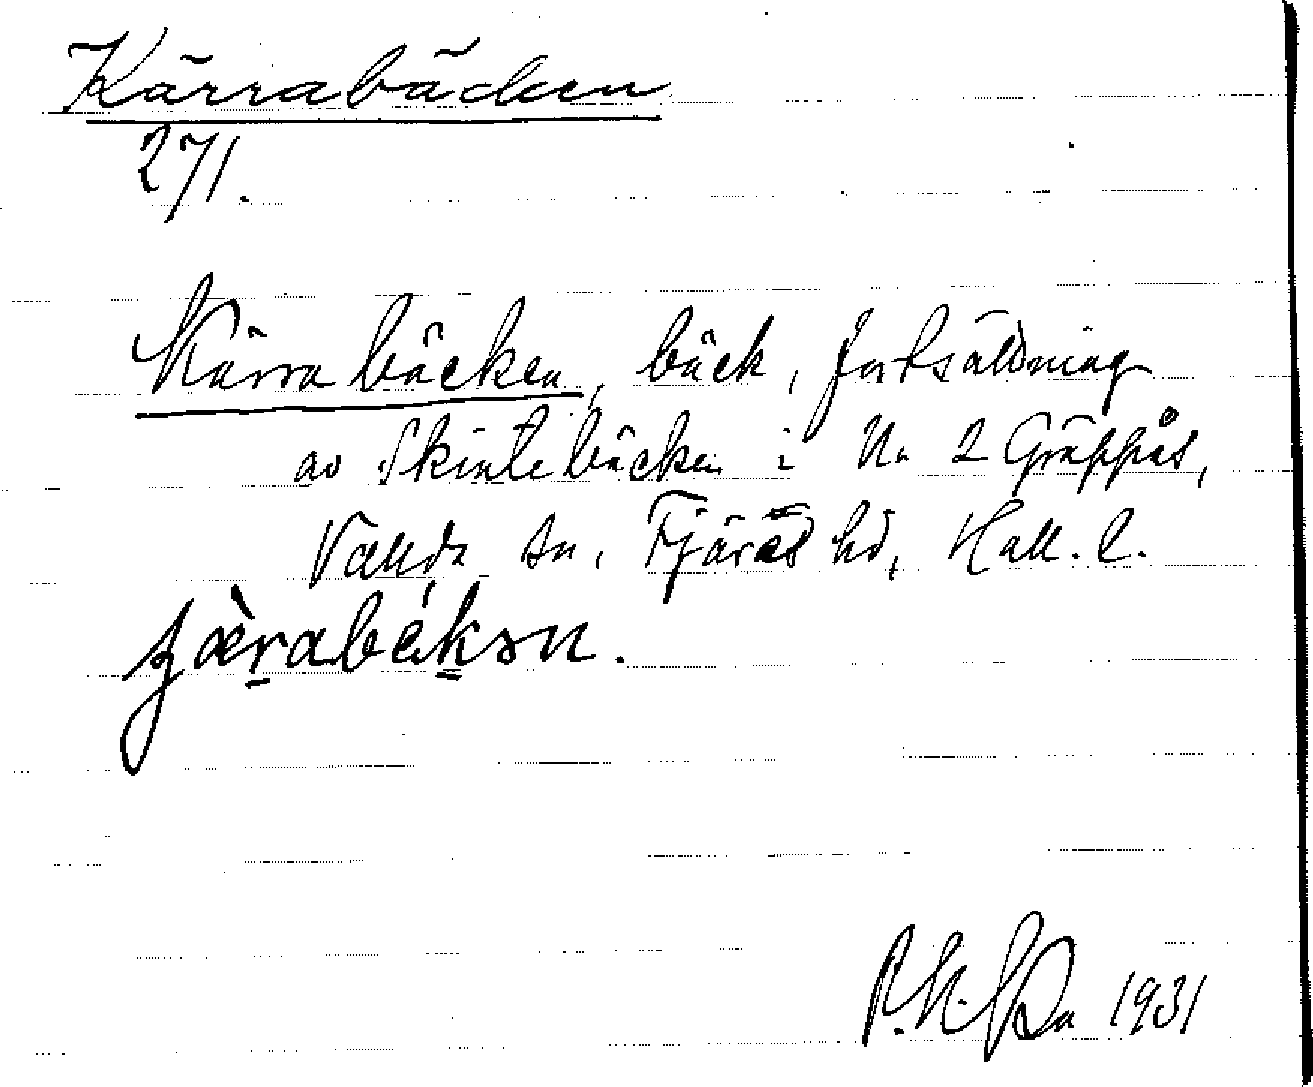 Kärrabäcken
271.
Kärrabäcken, bäck, fortsättning
av Skintebäcken i N. 2 Gräppås,
Vallda sn, Fjäräs hd, Hall. l.
1931